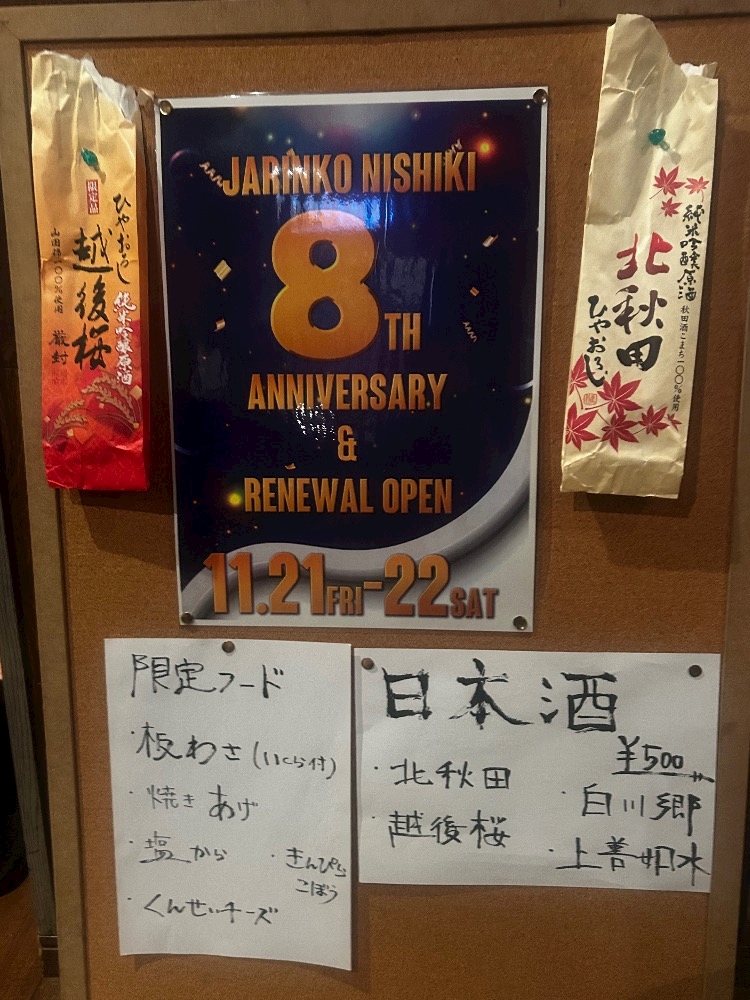 限定品
ひやおろし
越後桜
純米吟醸原酒
山田錦一〇〇%使用
厳封
JARINKO NISHIKI
8TH
ANNIVERSARY
&
RENEWAL OPEN
11.21FRI-22SAT
純米吟醸原酒
秋田酒こまち一〇〇%使用
北秋田
ひやおろし
限定フード
・板わさ(いくら付)
・焼きあげ
・塩から
・きんぴら
ごぼう
・くんせいチーズ
日本酒
¥500
・北秋田
・越後桜
・白川郷
・上善如水